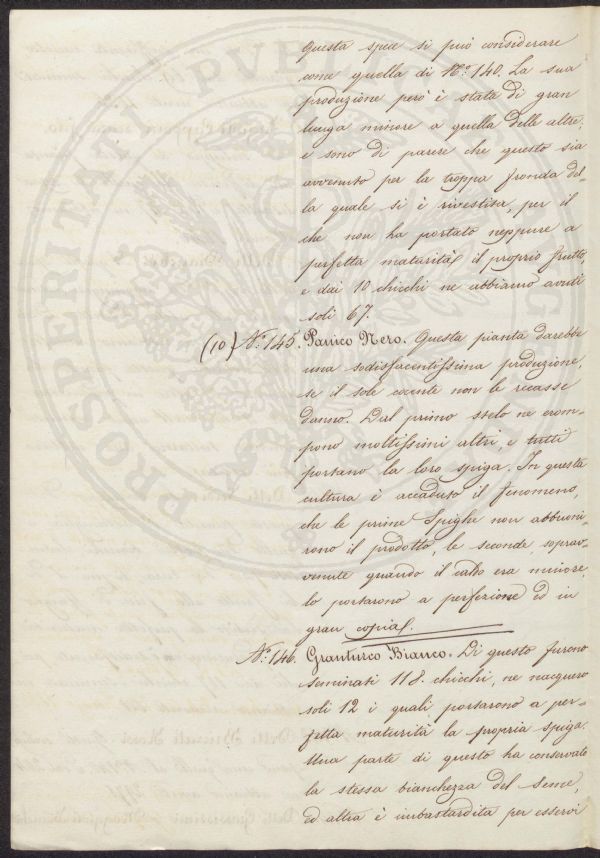 Questa spece si può considerare
come quella di N.o 140. La sua
produzione però è stata di gran
lunga minore a quella delle altre,
e sono di parere che questo sia
avvenuto per la troppa fronda del-
la quale si è rivestita, per il
che non ha portato neppure a
perfetta maturità il proprio frutto,
e dai 10 chicchi ne abbiamo avuti
soli 67.
(10) N.o 145. Panico Nero. Questa pianta darebbe
una sodisfacentissima produzione,
se il sole cocente non le recasse
danno. Dal primo stelo ne erom-
pono moltissimi altri, e tutti
portano la loro spiga. In questa
cultura è accaduto il fenomeno,
che le prime Spighe non abbuoni-
rono il prodotto, le seconde soprav-
venute quando il calo era minore,
lo portarono a perfezione ed in
gran copia.
N.o 146. Granturco Bianco. Di questo furono
seminati 118. chicchi, ne nacquero
soli 12 i quali portarono a per-
fetta maturità la propria spiga.
Una parte di questo ha conservato
la stessa bianchezza del seme,
ed altra è imbastardita per esservi
PROSPERITATI PVBLICAE AVG